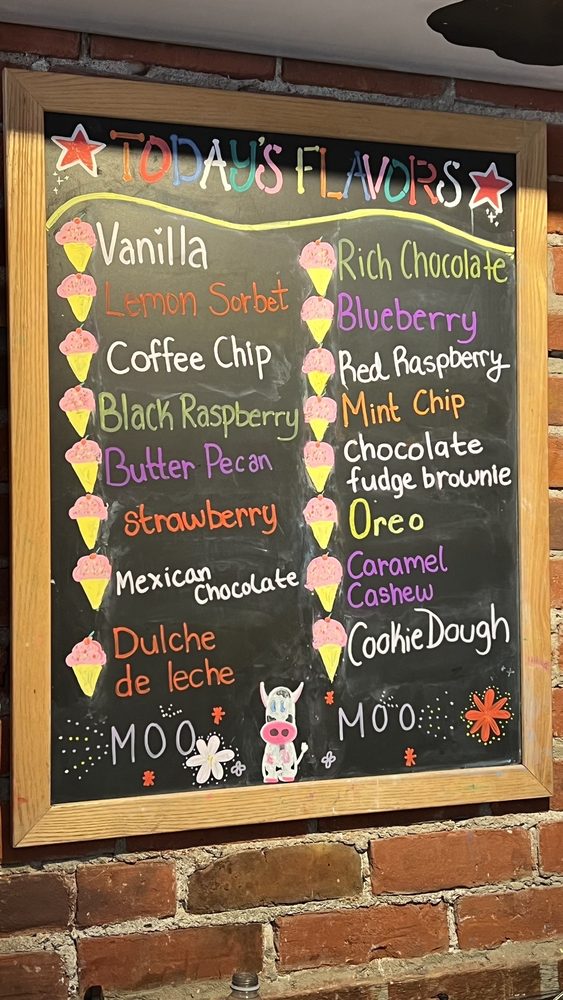 TODAY'S FLAVORS
Vanilla
Lemon Sorbet
Coffee Chip
Black Raspberry
Butter Pecan
strawberry
Mexican
Chocolate
Dulche
de leche
MOO
Rich Chocolate
Blueberry
Red Raspberry
Mint Chip
chocolate
fudge brownie
Oreo
Caramel
Cashew
Cookie Dough
MOO